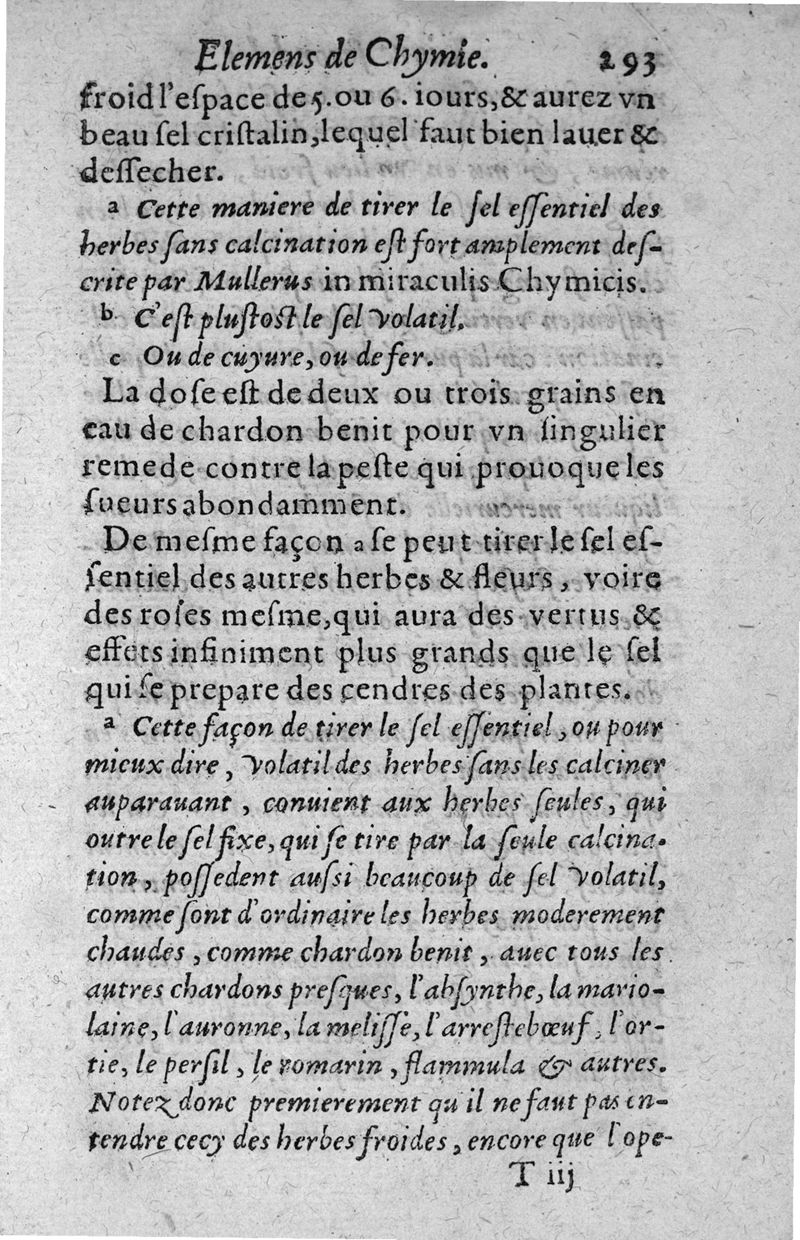 Elemens de Chymie. 293
froid l'eſpace de 5. ou 6. iours, & aurez vn
beau ſel criſtalin, lequel faut bien lauer &
deſſecher.
a Cette maniere de tirer le ſel eſſentiel des
herbes ſans calcination eſt fort amplement deſ-
crite par Mullerus in miraculis Chymicis.
b C'eſt pluſtoſt le ſel volatil.
c Ou de cuyure, ou de fer.
La doſe eſt de deux ou trois grains en
eau de chardon benit pour vn ſingulier
remede contre la peſte qui prouoque les
ſueurs abondamment.
De meſme façon a ſe peut tirer le ſel eſ-
ſentiel des autres herbes & fleurs, voire
des roſes meſme, qui aura des vertus &
effets infiniment plus grands que le ſel
qui ſe prepare des cendres des plantes.
a Cette façon de tirer le ſel eſſentiel, ou pour
mieux dire, volatil des herbes ſans les calciner
auparauant, conuient aux herbes ſeules, qui
outre le ſel fixe, qui ſe tire par la ſeule calcina-
tion, poſſedent auſsi beaucoup de ſel volatil,
comme ſont d'ordinaire les herbes moderement
chaudes, comme chardon benit, auec tous les
autres chardons preſques, l'abſynthe, la mario-
laine, l'auronne, la meliſſe, l'arreſtebœuf, l'or-
tie, le perſil, le romarin, flammula & autres.
Notez donc premierement qu'il ne faut pas en-
tendre cecy des herbes froides, encore que l'ope-
T iij